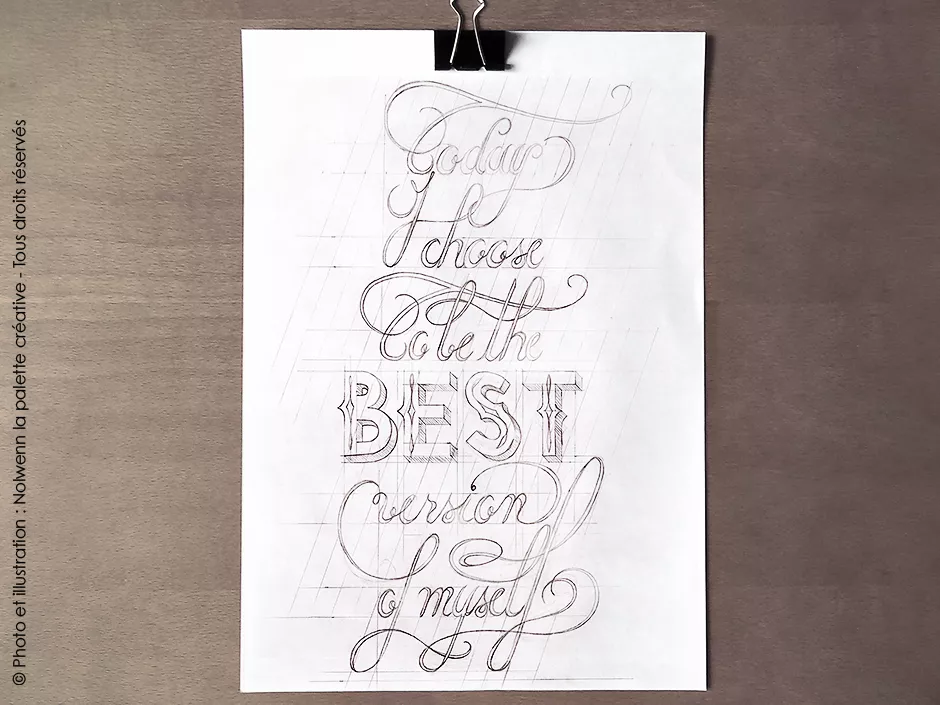 Today
I choose
to be the
BEST
version
of myself
© Photo et illustration : Nolwenn la palette créative - Tous droits réservés